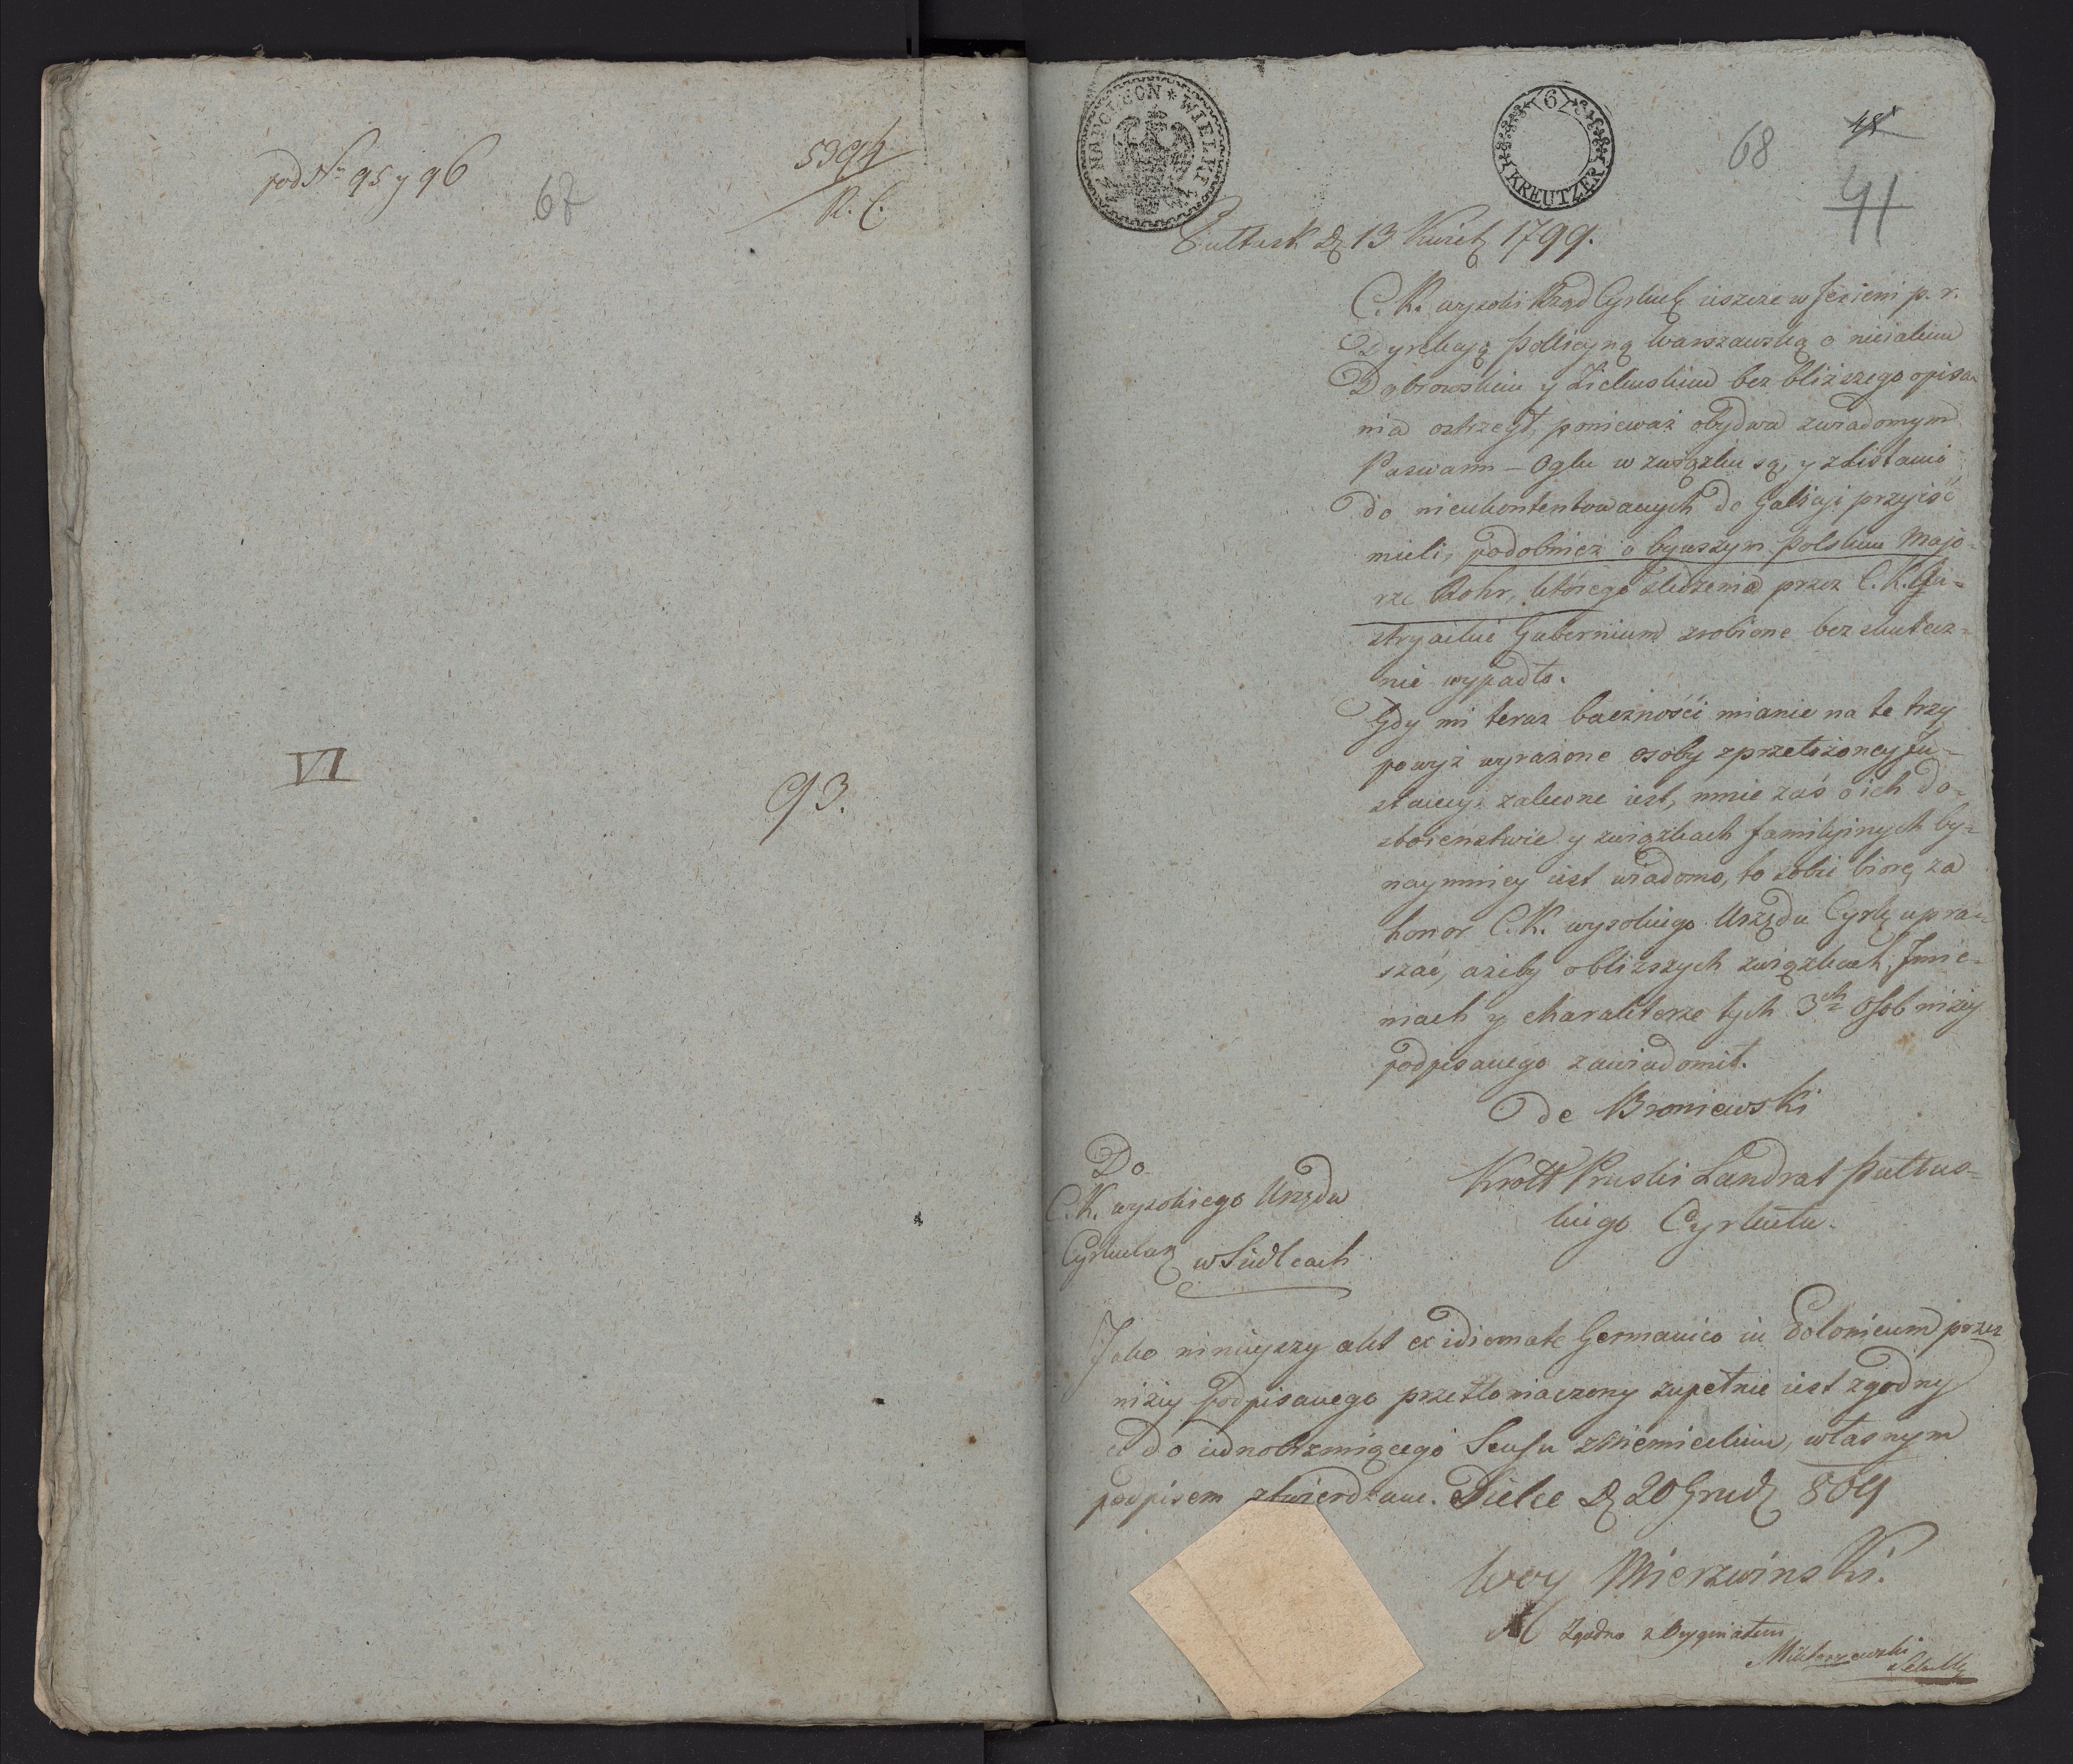 pod Nr 95 y 96
67
5394
R. C.
VI
93.
NAPOLEON * WIELKI
6
KREUTZER
68
48
41
Pułtusk d. 13 Kwiet. 1799.
C. K. wysoki Urząd Cyrkuł. ieszcze w Jesieni p. r.
Dyrekcyą Policyiną Warszawską o nieiakim
Dąbrowskim y Zielinskim bez bliższego opisa-
nia ostrzegł, ponieważ obydwa z wiadomym
Paswann-Oglu w związku są, y z listami
do nieukontentowanych do Galicyi przyiść
mieli, podobnież o bywszym Polskim Majo-
rze Rohr, którego śledzenia przez C. K.
stryackie Gubernium zrobione bezskutecz-
nie wypadło.
Gdy mi teraz baczność mianie na te trzy
powyż wyrażone osoby z przełożoney In-
stancyi zalecone iest, mnie zaś o ich do-
stoieństwie y związkach familyinych by-
naymniey iest wiadomo, to sobie biorę za
honor C. K. wysokiego Urzędu Cyrk. upra-
szać, ażeby o bliższych związkach, Jmie-
niach y charakterze tych 3ch Osob niżey
podpisanego zawiadomił.
de Broniewski
Król Pruski Landrat Pułtus-
kiego Cyrkułu.
Do
C. K. wysokiego Urzędu
Cyrkular. w Siedlcach
Jako ninieyszy akt ex idiomate Germanico in Polonicum przez
niżey podpisanego przetłomaczony zupełnie iest zgodny
do iednobrzmiącego Sensu z Niemieckim, własnym
podpisem stwierdzam. Sielce d. 20 Grud. 809
Woy Mierzwinski.
Zgodno z Oryginałem